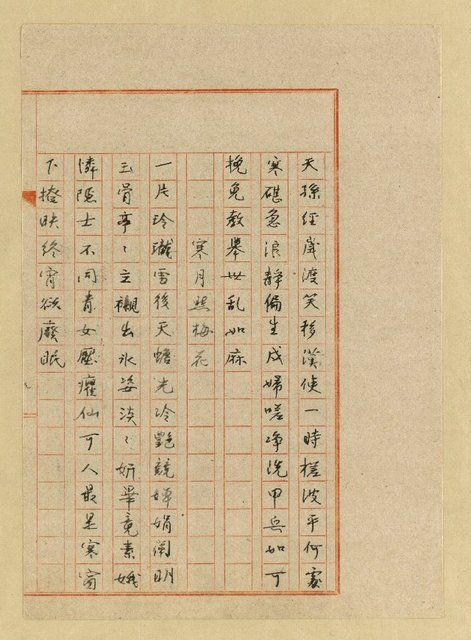 天孫經歲渡笑移漢使一時槎波平何處
寒礁急浪靜偏生戍婦嗟净洗甲兵如可
挽免教舉世乱如麻
寒月照梅花
一片玲瓏雪後天蟾光冷艷競嬋娟闌明
玉骨亭〻立襯出氷姿淡〻妍畢竟素娥
憐隠士不同青女壓癯仙可人最是寒窗
下撩映終宵欲廢眠